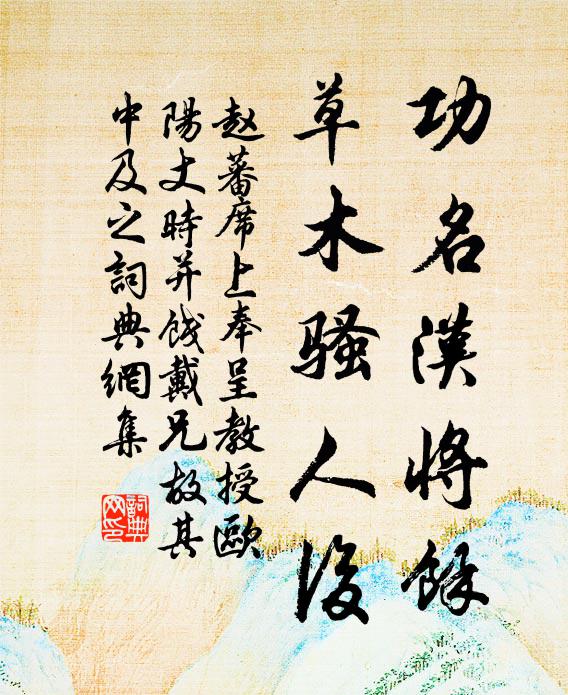 功名漢將餘
草木騷人後
赵蕃席上奉呈教授歐
陽丈時并餞戴兄故其
中及之詞典網集
詞典
网印